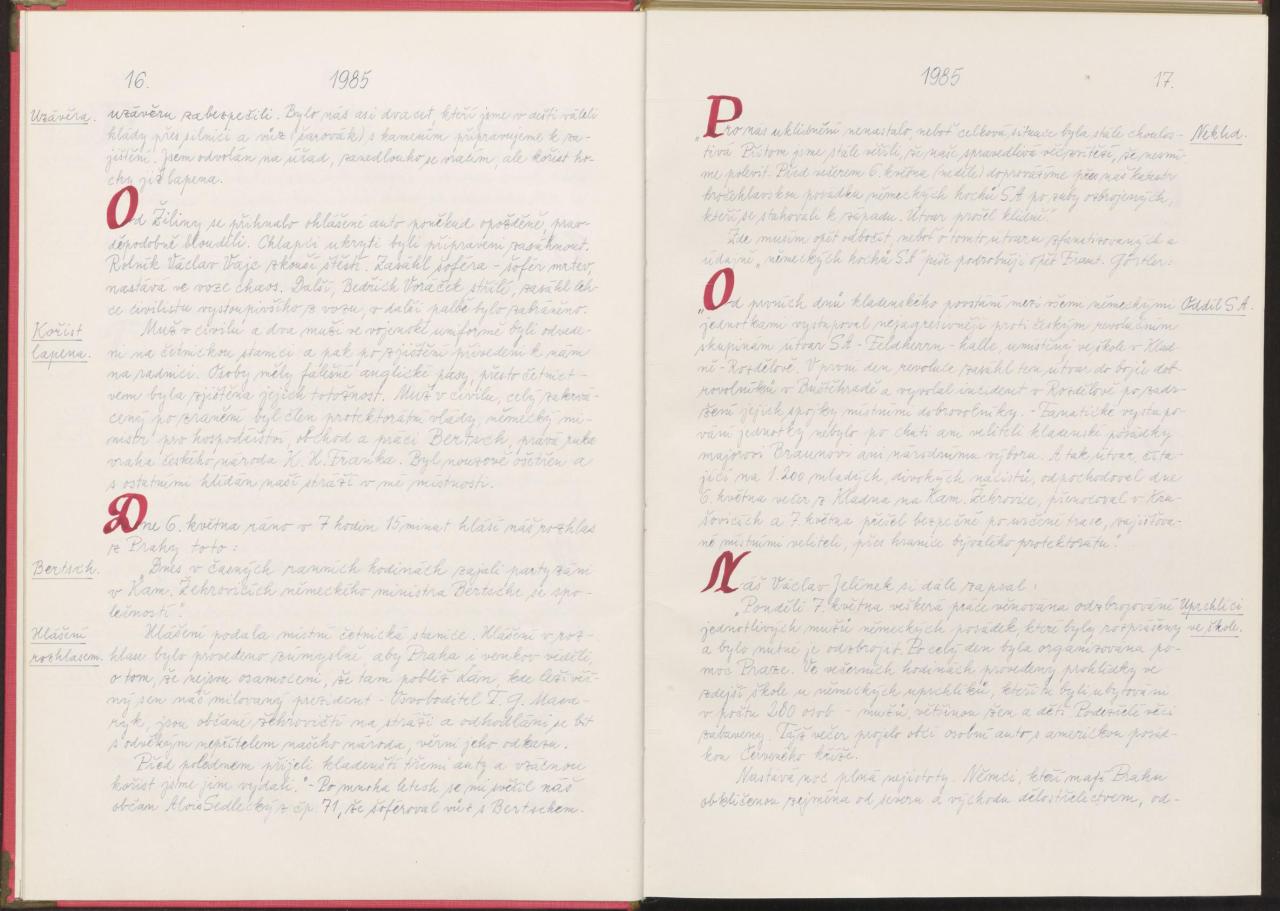 16. 1985
Uzávěra. uzávěru zabezpečili. Bylo nás asi dvacet, kteří jsme v dešti váleli
klády přes silnici a vůz (žarovák) s kamením připravujeme k za-
jištění. Jsem odvolán na úřad, zanedlouho se vracím, ale kořist ho-
chy již lapena.
Od Žiliny se přihnalo ohlášené auto poněkud opožděně, prav-
děpodobně bloudili. Chlapci ukrytí byli připraveni zasáhnout.
Rolník Václav Vajc zkouší štěstí. Zasáhl šoféra - šofér mrtev,
nastává ve voze chaos. Další, Bedřich Voráček střílí, zasáhl leh-
ce civilistu vystoupivšího z vozu, v další palbě bylo zabráněno.
Kořist lapena. Muž v civilu a dva muži ve vojenské uniformě byli odvede-
ni na četnickou stanici a pak po zjištění přivedeni k nám
na radnici. Osoby měly falešné anglické pasy, přesto četnict-
vem byla zjištěna jejich totožnost. Muž v civilu, celý zakrvá-
cený po zranění byl člen protektorátní vlády, německý mi-
nistr pro hospodářství, obchod a práci Bertsch, pravá ruka
vraha českého národa K. H. Franka. Byl nouzově ošetřen a
s ostatními hlídán naší stráží v mé místnosti.
Dne 6. května ráno v 7 hodin 15 minut hlásí náš rozhlas
z Prahy toto:
Bertsch. "Dnes v časných ranních hodinách zajali partyzáni
v Kam. Žehrovicích německého ministra Bertsche se spo-
lečností".
Hlášení rozhlasem. Hlášení podala místní četnická stanice. Hlášení v roz-
hlase bylo provedeno zúmyslně aby Praha i venkov věděli,
o tom, že nejsou osamoceni, že tam poblíž Lán, kde leží věč-
ný sen náš milovaný prezident - Osvoboditel T. G. Masa-
ryk, jsou občané žehrovičtí na stráži a odhodláni se bít
s odvěkým nepřítelem našeho národa, věrni jeho odkazu.
Před polednem přijeli kladenští třemi auty a vzácnou
kořist jsme jim vydali." - Po mnoha letech se mi svěřil náš
občan Alois Sedlecký z čp. 71, že šoféroval vůz s Bertschem.
1985 17.
"Pro nás uklidnění nenastalo neboť celková situace byla stále choulos-
Neklid.
tivá. Přitom jsme stále věřili, že naše spravedlivá věc zvítězí, že nesmí-
me polevit. Před večerem 6. května (neděle) doprovázíme přes náš katastr
posádku německých hochů SA po zuby ozbrojených,
kteří se stahovali k západu. Útvar prošel klidně".
Zde musím opět odbočit, neboť o tomto útvaru zfanatizovaných a
údajně "německých hochů SA" píše podrobněji opět Frant. Gőstler:
"Od prvních dnů kladenského povstání mezi všemi německými
Oddíl S.A.
jednotkami vystupoval nejagresivněji proti českým revolučním
skupinám útvar SA - Feldherrn - halle, umístěný ve škole v Klad-
ně - Rozdělově. V první den revoluce zasáhl ten útvar do bojů dob-
rovolníků v Buštěhradě a vyvolal incident v Rozdělově po zadr-
žení jejich spojky místními dobrovolníky. - Fanatické vystupo-
vání jednotky nebylo po chuti ani veliteli kladenské posádky
majorovi Braunovi ani národnímu výboru. A tak útvar, čita-
jící na 1.200 mladých, divokých nacistů, odpochodoval dne
6. května večer z Kladna na Kam. Žehrovice, přenocoval v Kru-
šovicích a 7. května přešel bezpečně po určené trase, zajišťova-
né místními veliteli, přes hranice bývalého protektorátu".
Náš Václav Jelínek si dále zapsal:
"Pondělí 7. května veškerá práce věnována odzbrojování
Uprchlíci ve škole.
jednotlivých mužů německých posádek, které byly rozprášeny
a bylo nutné je odzbrojit. Po celý den byla organizována po-
moc Praze. Ve večerních hodinách provedeny prohlídky ve
zdejší škole u německých uprchlíků, kteří tu byli ubytováni
v počtu 200 osob - mužů, většinou žen a dětí. Podezřelé věci
zabaveny. Týž večer projelo obcí osobní auto s americkou posád-
kou Červeného kříže.
Nastává noc plná nejistoty. Němci, kteří mají Prahu
obklíčenou zejména od severu a východu dělostřelectvem, od-